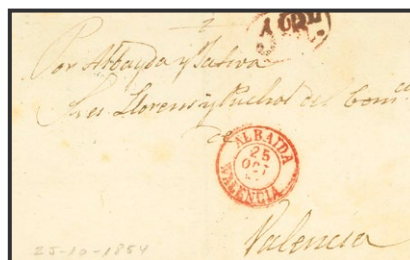 Por Albayda y Jativa
Sres Llorens y Puchol del Comco
ALBAIDA
25
OCT
VALENCIA
Valencia
25-10-1854